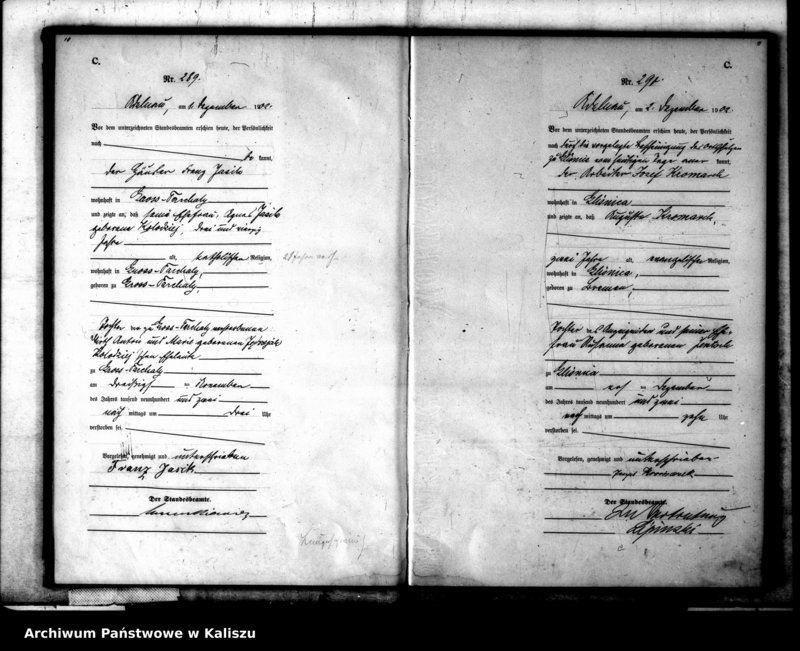 C.
Nr. 289.
Adelnau, am 1. Dezember 190
Vor dem unterzeichneten Standesbeamten erschien heute, der Persönlichkeit
nach
kannt,
der Häusler Franz Jasik
wohnhaft in Gross-Tarchaly
und zeigte an, daß seine Ehefrau, Agnes Jasik
geborene Kolodziej, drei und vierzig
Jahre
alt, katholischer Religion,
wohnhaft in Gross-Tarchaly,
geboren zu Gross-Tarchaly,
Tochter der zu Gross-Tarchaly verstorbenen
Anton und Marie geborenen
Kolodziej'schen Eheleute
zu Gross-Tarchaly
am Dreissigsten November
des Jahres tausend neunhundert und zwei
nach mittags um drei Uhr
verstorben sei.
Vorgelesen, genehmigt und unterschrieben
Franz Jasik
Der Standesbeamte.
C.
Nr. 290.
Adelnau, am 2. Dezember 190
Vor dem unterzeichneten Standesbeamten erschien heute, der Persönlichkeit
nach durch die vorgelegte Bescheinigung des Ortsschulzen
zu Glisnica vom heutigen Tage aner kannt,
der Arbeiter Josef
wohnhaft in Glisnica
und zeigte an, daß Auguste
zwei Jahre alt, evangelischer Religion,
wohnhaft in Glisnica,
geboren zu Bremen,
Tochter des Anzeigenden und seiner Ehe-
frau Susanna geborenen
zu Glisnica
am Dezember
des Jahres tausend neunhundert und zwei
nach mittags um zehn Uhr
verstorben sei.
Vorgelesen, genehmigt und unterschrieben
Der Standesbeamte.
In Vertretung
Archiwum Państwowe w Kaliszu